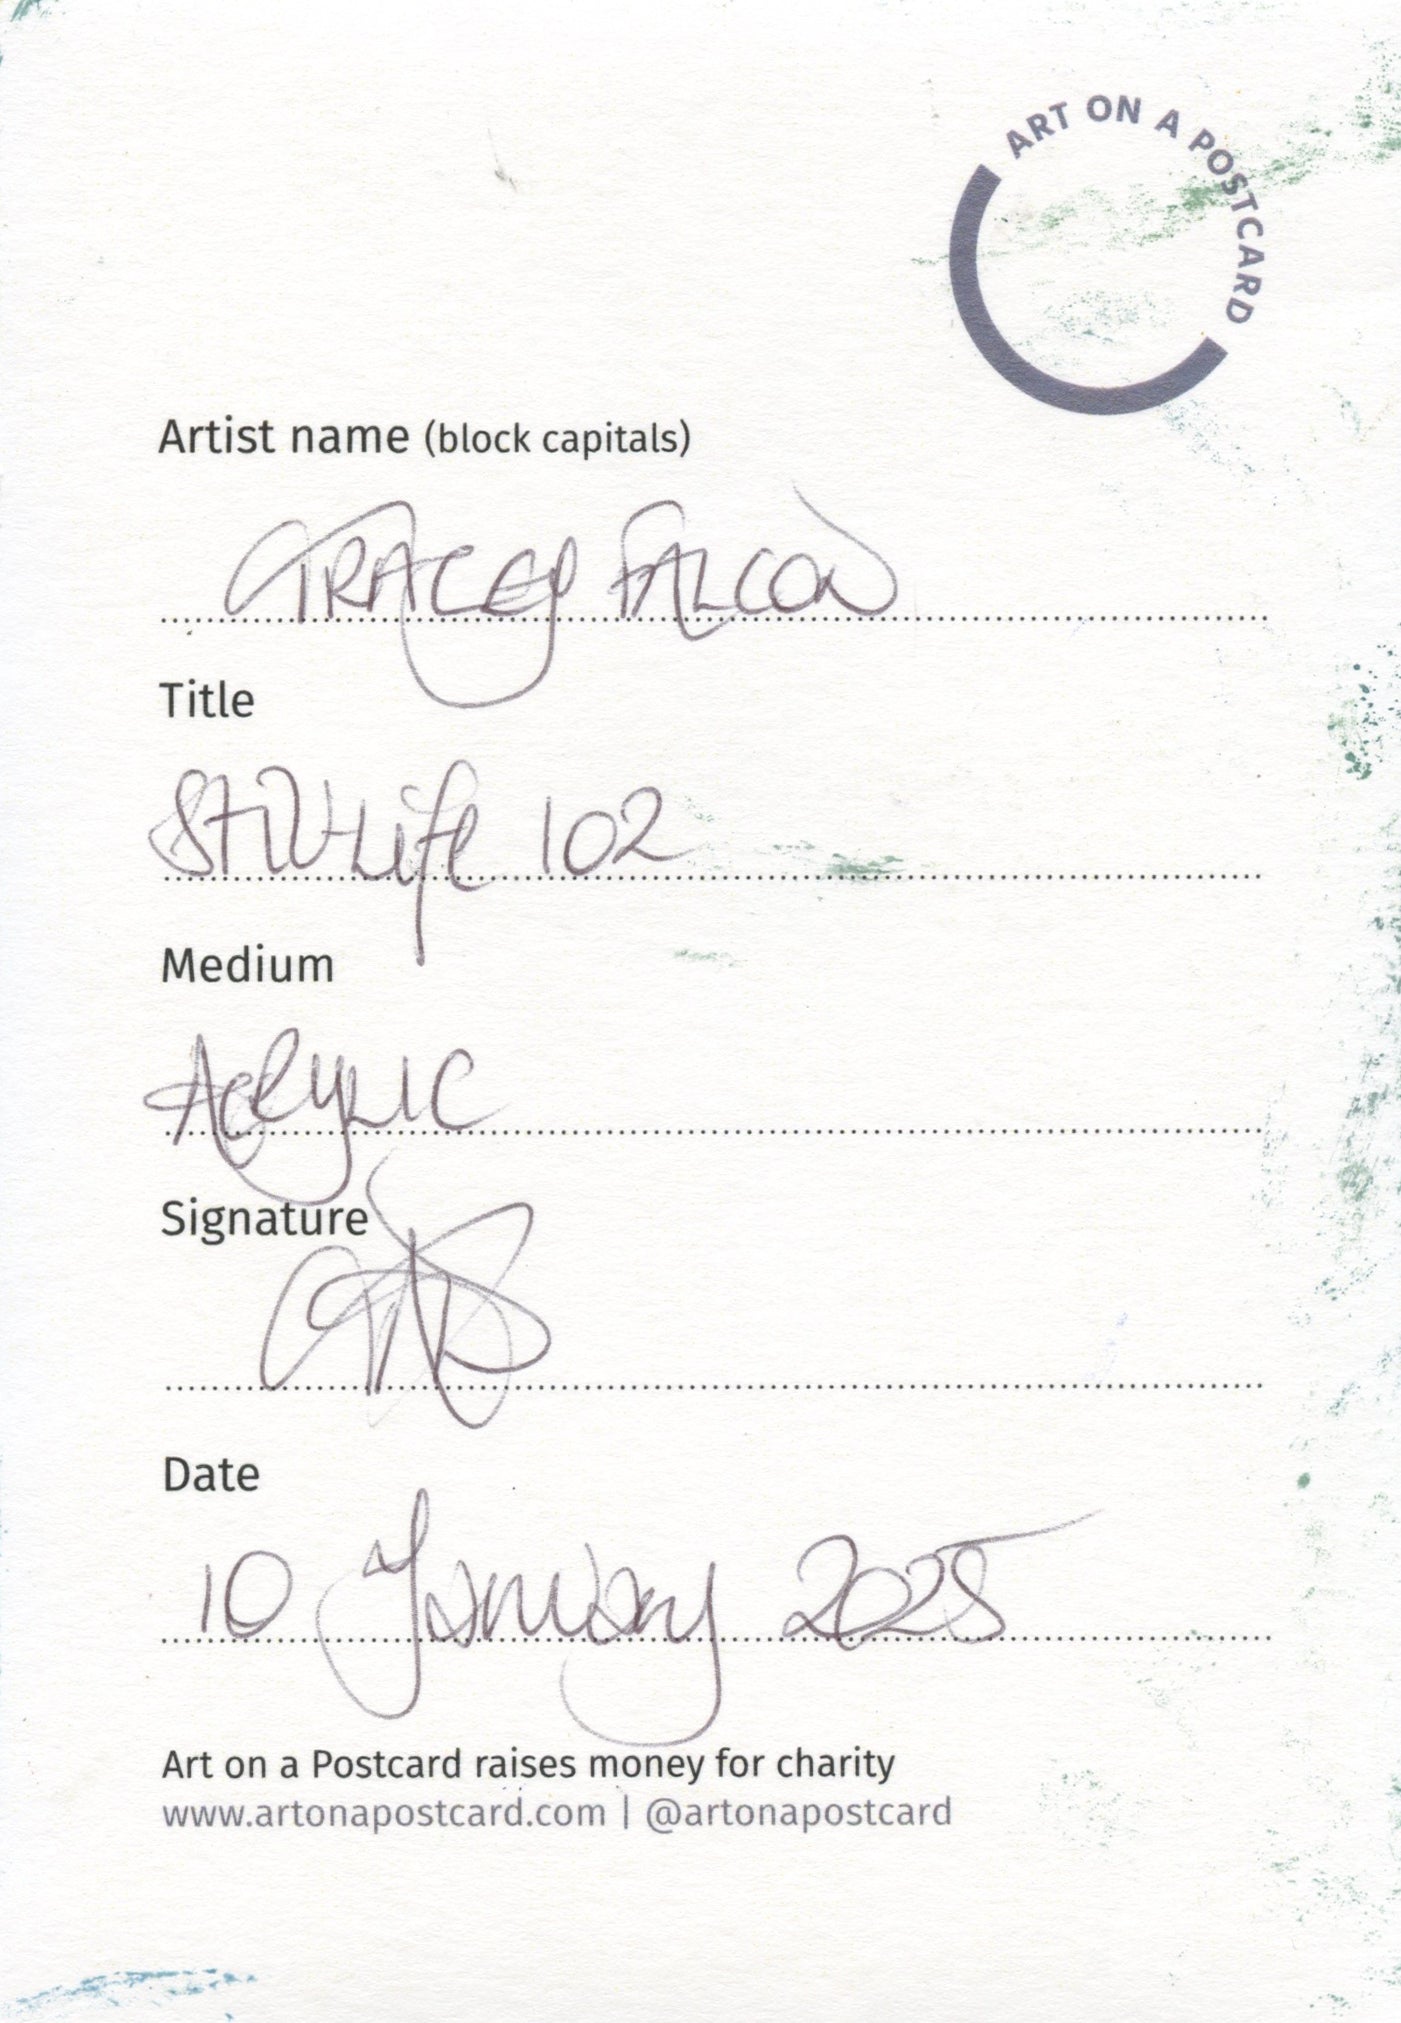 ART ON A POSTCARD
Artist name (block capitals)
TRACEY FALCON
Title
Still Life 102
Medium
ACRYLIC
Signature
Date
10 January 2025
Art on a Postcard raises money for charity
www.artonapostcard.com | @artonapostcard